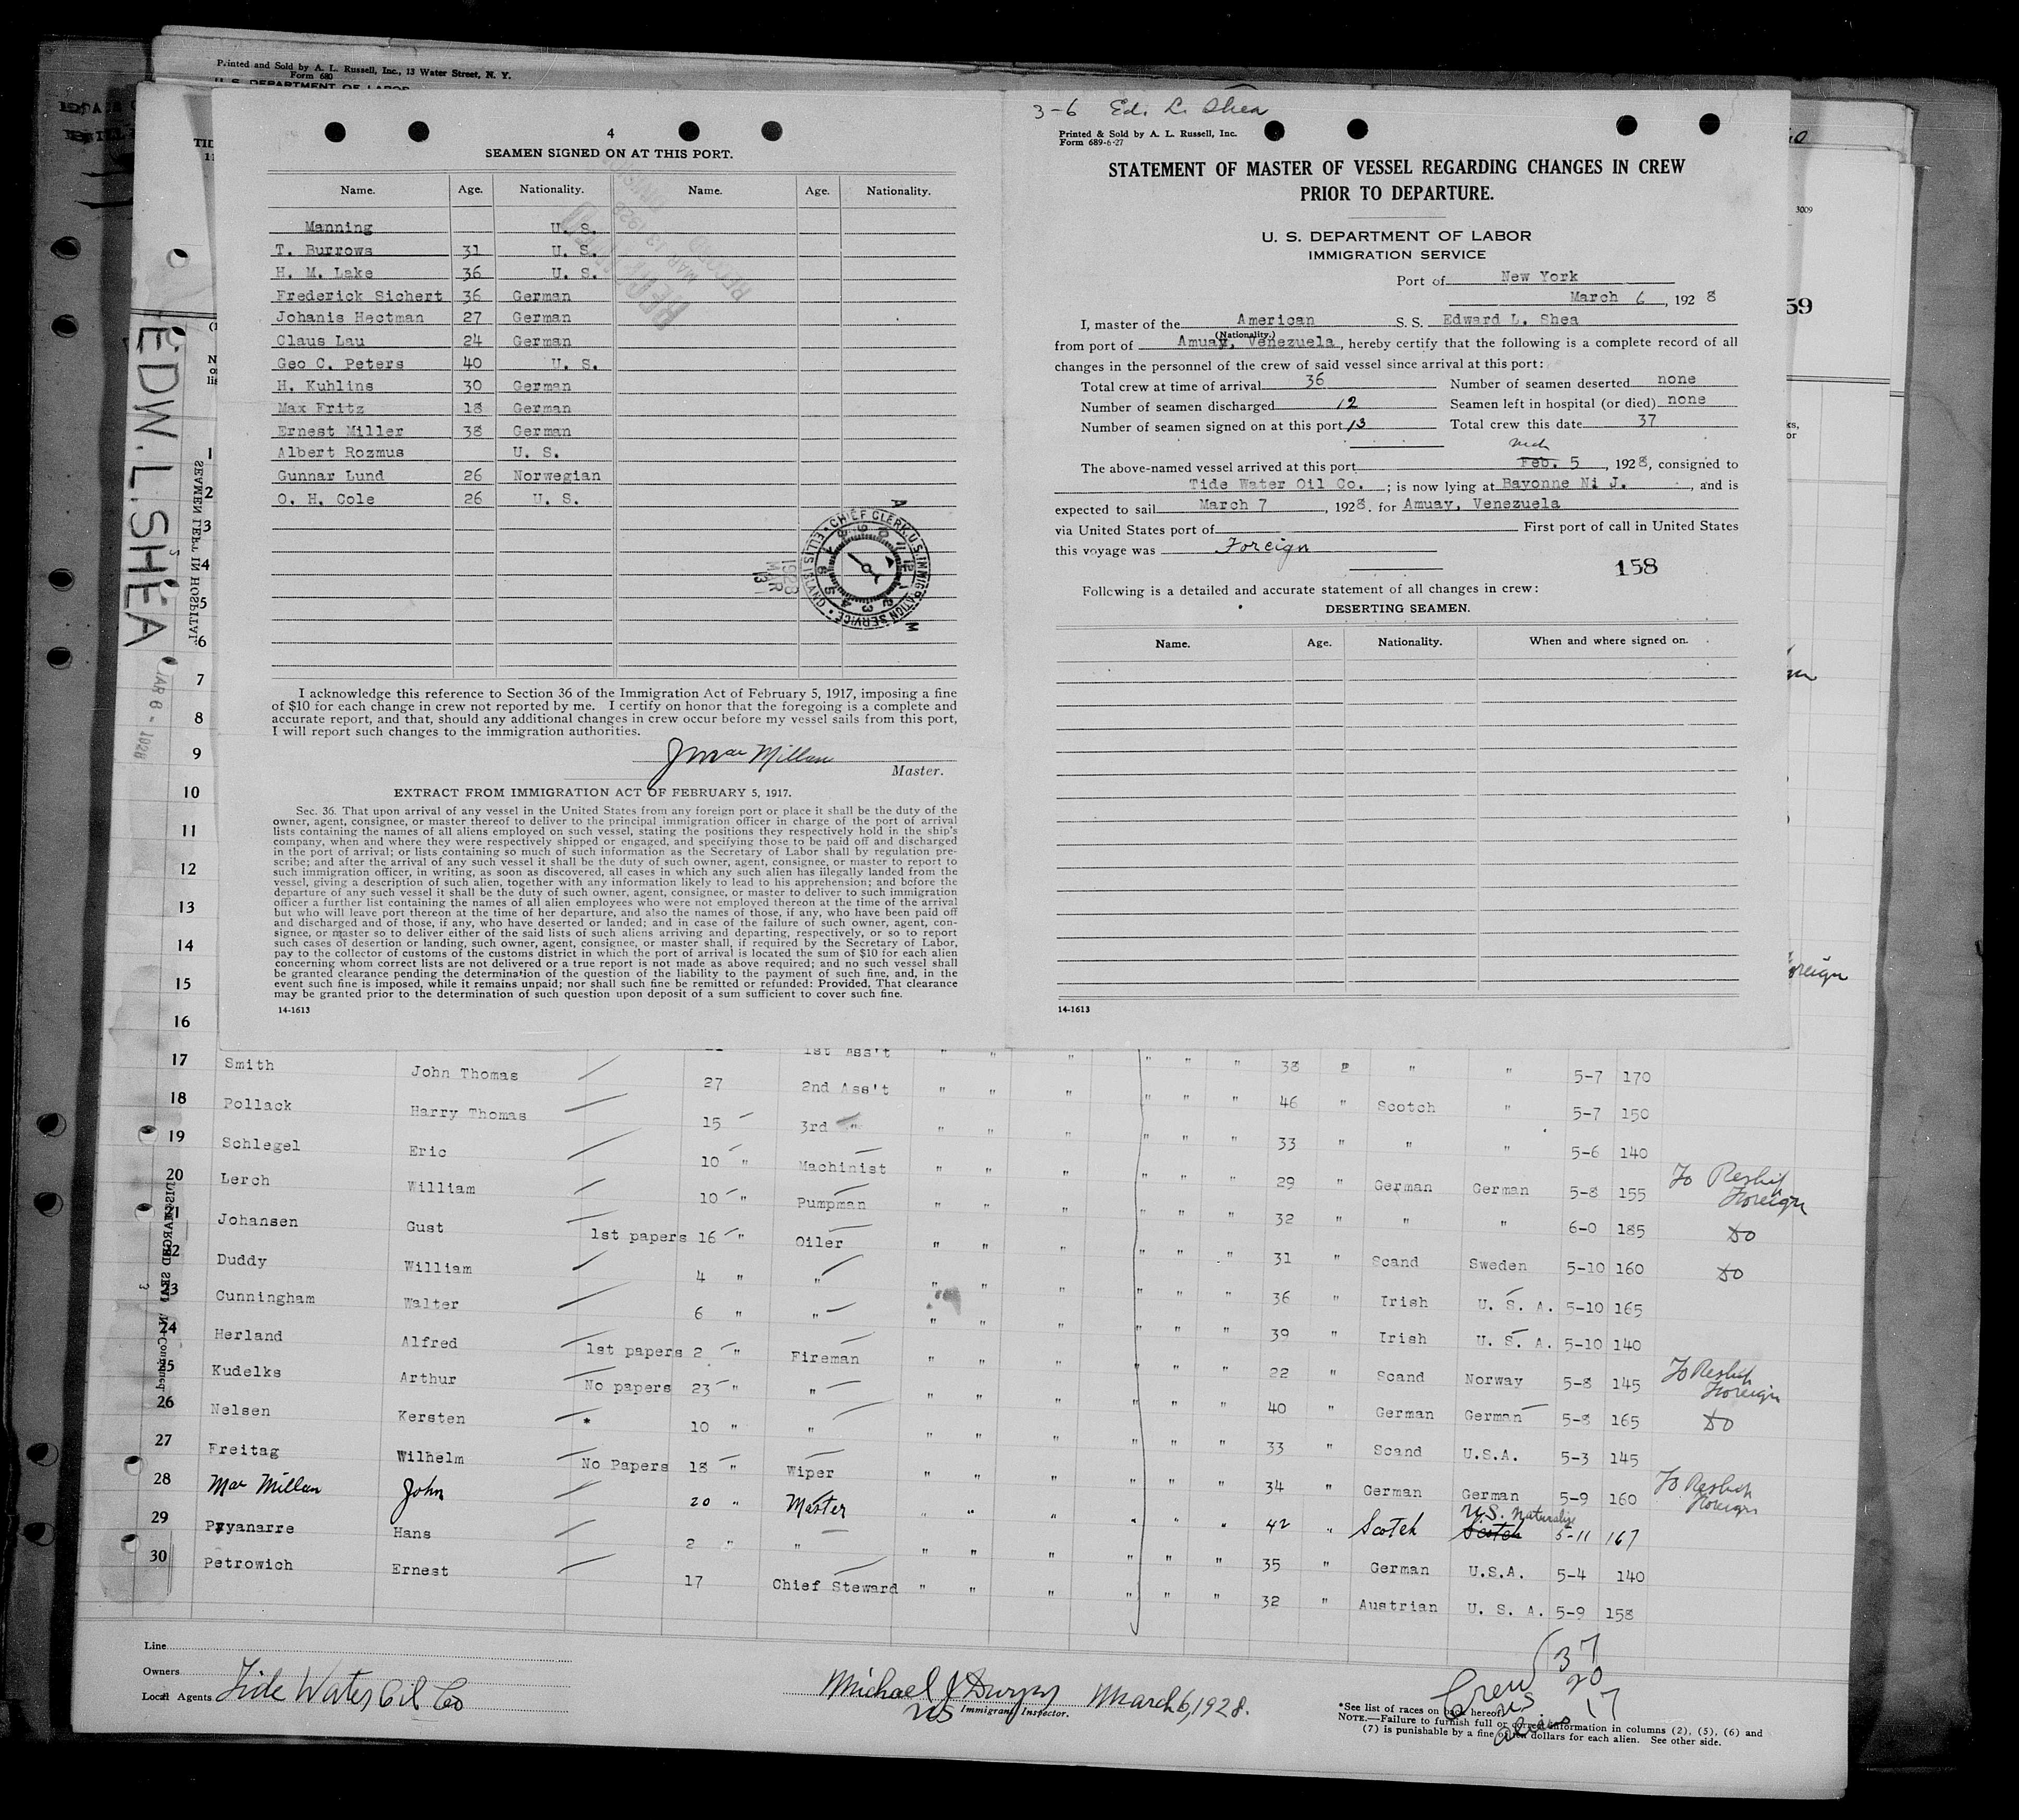 Printed and Sold by A. L. Russell, Inc., 13 Water Street, N. Y.
Form 680
U. S. DEPARTMENT OF LABOR
4
SEAMEN SIGNED ON AT THIS PORT.
Name. Age. Nationality. Name. Age. Nationality.
Manning U. S.
T. Burrows 31 U. S.
H. M. Lake 36 U. S.
Frederick Sichert 36 German
Johanis Hectman 27 German
Claus Lau 24 German
Geo C. Peters 40 U. S.
H. Kuhlins 30 German
Max Fritz 18 German
Ernest Miller 38 German
Albert Rozmus U. S.
Gunnar Lund 26 Norwegian
O. H. Cole 26 U. S.
CHIEF CLERK, U. S. IMMIGRATION SERVICE ELLIS ISLAND
1928 MAR 13
I acknowledge this reference to Section 36 of the Immigration Act of February 5, 1917, imposing a fine
of $10 for each change in crew not reported by me. I certify on honor that the foregoing is a complete and
accurate report, and that, should any additional changes in crew occur before my vessel sails from this port,
I will report such changes to the immigration authorities.
J Mac Millan
Master.
EXTRACT FROM IMMIGRATION ACT OF FEBRUARY 5, 1917.
Sec. 36. That upon arrival of any vessel in the United States from any foreign port or place it shall be the duty of the
owner, agent, consignee, or master thereof to deliver to the principal immigration officer in charge of the port of arrival
lists containing the names of all aliens employed on such vessel, stating the positions they respectively hold in the ship's
company, when and where they were respectively shipped or engaged, and specifying those to be paid off and discharged
in the port of arrival; or lists containing so much of such information as the Secretary of Labor shall by regulation pre-
scribe; and after the arrival of any such vessel it shall be the duty of such owner, agent, consignee, or master to report to
such immigration officer, in writing, as soon as discovered, all cases in which any such alien has illegally landed from the
vessel, giving a description of such alien, together with any information likely to lead to his apprehension; and before the
departure of any such vessel it shall be the duty of such owner, agent, consignee, or master to deliver to such immigration
officer a further list containing the names of all alien employees who were not employed thereon at the time of the arrival
but who will leave port thereon at the time of her departure, and also the names of those, if any, who have been paid off
and discharged and of those, if any, who have deserted or landed; and in case of the failure of such owner, agent, con-
signee, or master so to deliver either of the said lists of such aliens arriving and departing, respectively, or so to report
such cases of desertion or landing, such owner, agent, consignee, or master shall, if required by the Secretary of Labor,
pay to the collector of customs of the customs district in which the port of arrival is located the sum of $10 for each alien
concerning whom correct lists are not delivered or a true report is not made as above required; and no such vessel shall
be granted clearance pending the determination of the question of the liability to the payment of such fine, and, in the
event such fine is imposed, while it remains unpaid; nor shall such fine be remitted or refunded: Provided, That clearance
may be granted prior to the determination of such question upon deposit of a sum sufficient to cover such fine.
14-1613
3-6 Ed. L. Shea
Printed & Sold by A. L. Russell, Inc.
Form 689-6-27
STATEMENT OF MASTER OF VESSEL REGARDING CHANGES IN CREW
PRIOR TO DEPARTURE.
U. S. DEPARTMENT OF LABOR
IMMIGRATION SERVICE
Port of New York
March 6, 1928
I, master of the American S. S. Edward L. Shea
(Nationality.)
from port of Amuay, Venezuela, hereby certify that the following is a complete record of all
changes in the personnel of the crew of said vessel since arrival at this port:
Total crew at time of arrival 36 Number of seamen deserted none
Number of seamen discharged 12 Seamen left in hospital (or died) none
Number of seamen signed on at this port 13 Total crew this date 37
The above-named vessel arrived at this port Mch Feb. 5, 1928, consigned to
Tide Water Oil Co. ; is now lying at Bayonne Ni J. , and is
expected to sail March 7, 1928. for Amuay, Venezuela
via United States port of First port of call in United States
this voyage was Foreign
158
Following is a detailed and accurate statement of all changes in crew:
DESERTING SEAMEN.
Name. Age. Nationality. When and where signed on.
14-1613
3009
59
EDW. L. SHEA
SEAMEN LEFT IN HOSPITAL
MAR 6 - 1928
1
2
3
4
5
6
7
8
9
10
11
12
13
14
15
16
1st Ass't " " " " " " 38 " " 5-7 170
17 Smith John Thomas 27 2nd Ass't " " " " " " 46 " Scotch " 5-7 150
18 Pollack Harry Thomas 15 3rd " " " " " " " 33 " " " 5-6 140
19 Schlegel Eric 10 " Machinist " " " " " " 29 " German German 5-8 155 To Reship Foreign
20 Lerch William 10 " Pumpman " " " " " " 32 " " " 6-0 185 Do
21 Johansen Gust 1st papers 16 " Oiler " " " " " " 31 " Scand Sweden 5-10 160 Do
22 Duddy William 4 " " " " " " " " 36 " Irish U. S. A. 5-10 165
23 Cunningham Walter 6 " " " " " " " " 39 " Irish U. S. A. 5-10 140
24 Herland Alfred 1st papers 2 " Fireman " " " " " " 22 " Scand Norway 5-8 145 To Reship Foreign
25 Kudelks Arthur No papers 23 " " " " " " " " 40 " German German 5-8 165 Do
26 Nelsen Kersten * 10 " " " " " " " " 33 " Scand U.S.A. 5-3 145
27 Freitag Wilhelm No Papers 18 " Wiper " " " " " " 34 " German German 5-9 160 To Reship Foreign
28 Mac Millan John 20 " Master " " " " " " 42 " Scotch Scotch U.S. Naturalize 5-11 167
29 Pryanarre Hans 2 " " " " " " " " 35 " German U.S.A. 5-4 140
30 Petrowich Ernest 17 Chief Steward " " " " " " 32 " Austrian U. S. A. 5-9 158
Line
Owners
Local Agents Tide Water Oil Co
Michael J Dwyer March 6, 1928.
US Immigrant Inspector.
Crew 37
US 20
aliens 17
*See list of races on back hereof.
NOTE.—Failure to furnish full or correct information in columns (2), (5), (6) and
(7) is punishable by a fine of ten dollars for each alien. See other side.